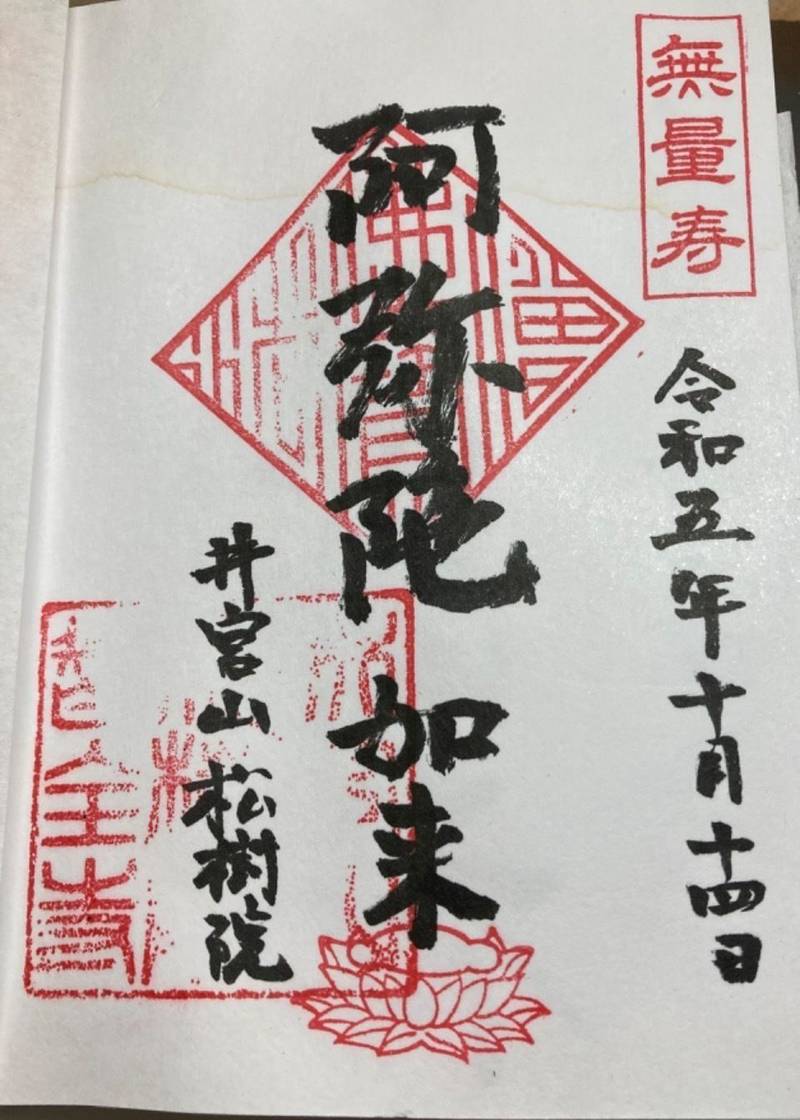 無量寿
令和五年十月十四日
阿弥陀如来
井宮山 松樹院